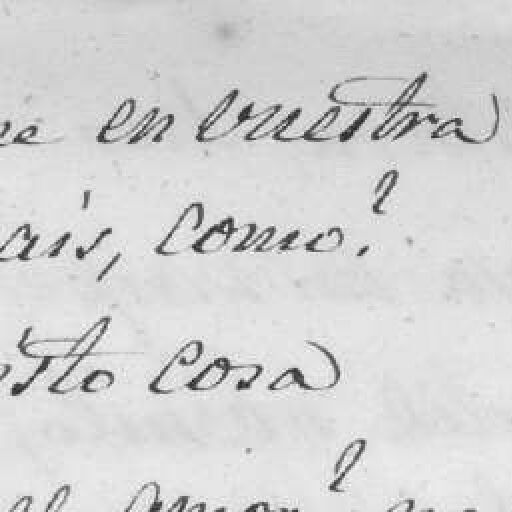 en vuestra
ais, como?
isto cosa
el amor?